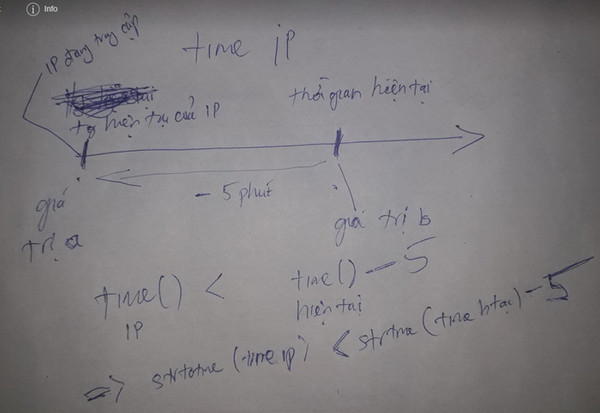 Info
time IP
IP đang truy cập
tg hiện tại của IP
thời gian hiện tại
- 5 phút
giá
trị a
giá trị b
time() < time() - 5
IP hiện tại
=> strtotime(time ip) < strtime(time htại) - 5